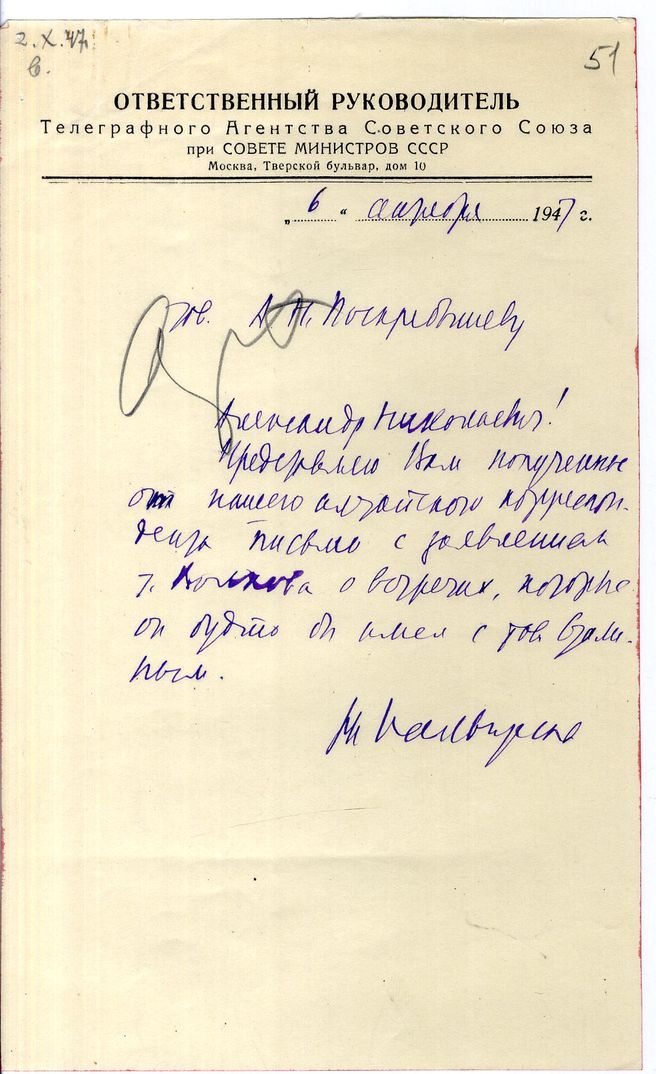 2.X.47
в.
51
ОТВЕТСТВЕННЫЙ РУКОВОДИТЕЛЬ
Телеграфного Агентства Советского Союза
при СОВЕТЕ МИНИСТРОВ СССР
Москва, Тверской бульвар, дом 10
„ 6 “ апреля 1947 г.
тов. А. Н. Поскребышеву
Александр Николаевич!
Представляю Вам полученное
от нашего алтайского корреспон-
дента письмо с заявлением
т. Волкова о встречах, которые
он будто бы имел с тов. Стали-
ным.